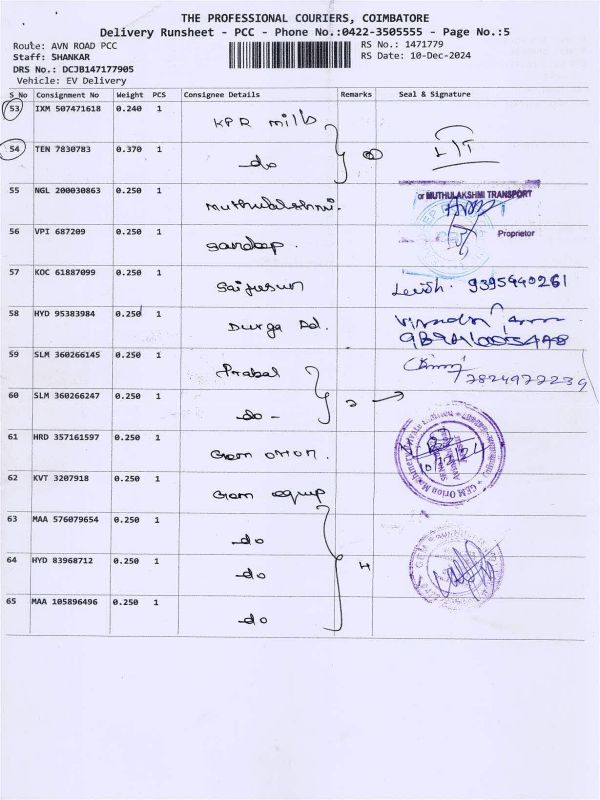 THE PROFESSIONAL COURIERS, COIMBATORE
Delivery Runsheet - PCC - Phone No.:0422-3505555 - Page No.:5
Route: AVN ROAD PCC
RS No.: 1471779
Staff: SHANKAR
RS Date: 10-Dec-2024
DRS No.: DCJB147177905
Vehicle: EV Delivery
S_No Consignment No Weight PCS Consignee Details Remarks Seal & Signature
53 IXM 507471618 0.240 1 KPR mills
54 TEN 7830783 0.370 1 -do
55 NGL 200030863 0.250 1 Muthulakshmi.
or MUTHULAKSHMI TRANSPORT
Proprietor
56 VPI 687209 0.250 1 Sandeep.
57 KOC 61887099 0.250 1 9395940261
58 HYD 95383984 0.250 1 Durga
59 SLM 360266145 0.250 1 Prabal
7824922239
60 SLM 360266247 0.250 1 -do- 2
61 HRD 357161597 0.250 1 Gem orion.
GEM Orion Machinery Private Limited
62 KVT 3207918 0.250 1 Gem equip
63 MAA 576079654 0.250 1 -do
64 HYD 83968712 0.250 1 -do 4
65 MAA 105896496 0.250 1 -do